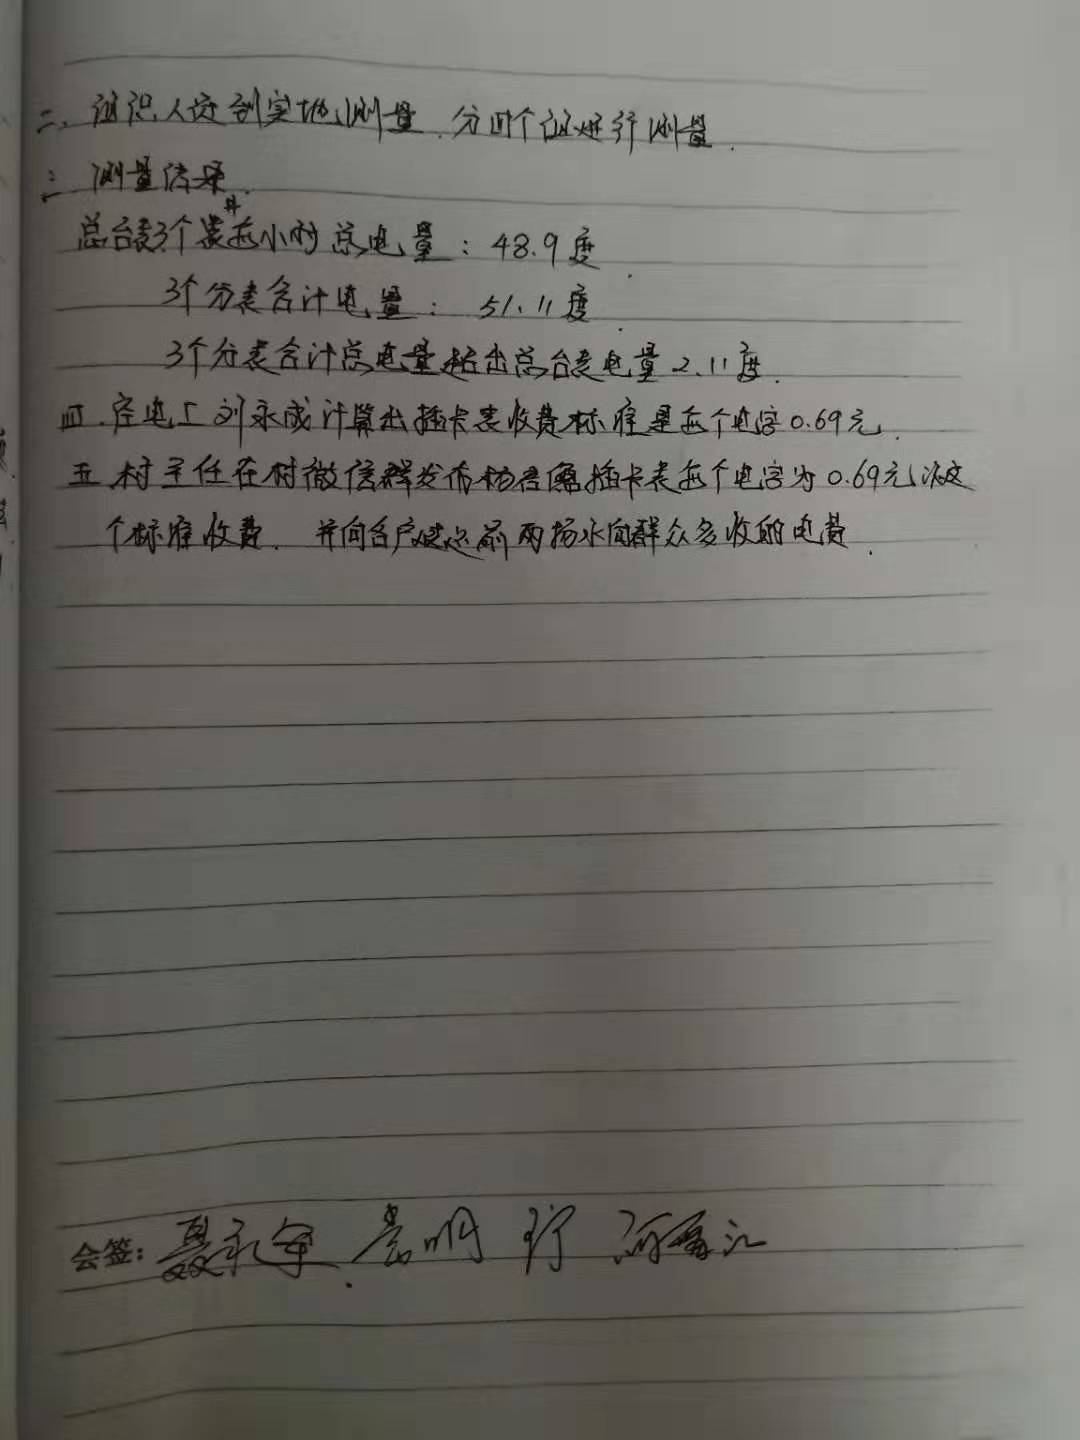 二、组织人员到实地测量,分四个组进行测量.
三 测量结果.
总台表3个井每小时总电量:48.9度.
3个分表合计电量:51.11度.
3个分表合计总电量超出总台表电量2.11度.
四.庄电工刘永成计算出插卡表收费标准是每个电字0.69元.
五 村主任在村微信群发布 插卡表每个电字为0.69元 这
个标准收费.并向各户退还前两扬水向群众多收的电费.
会签:聂永军